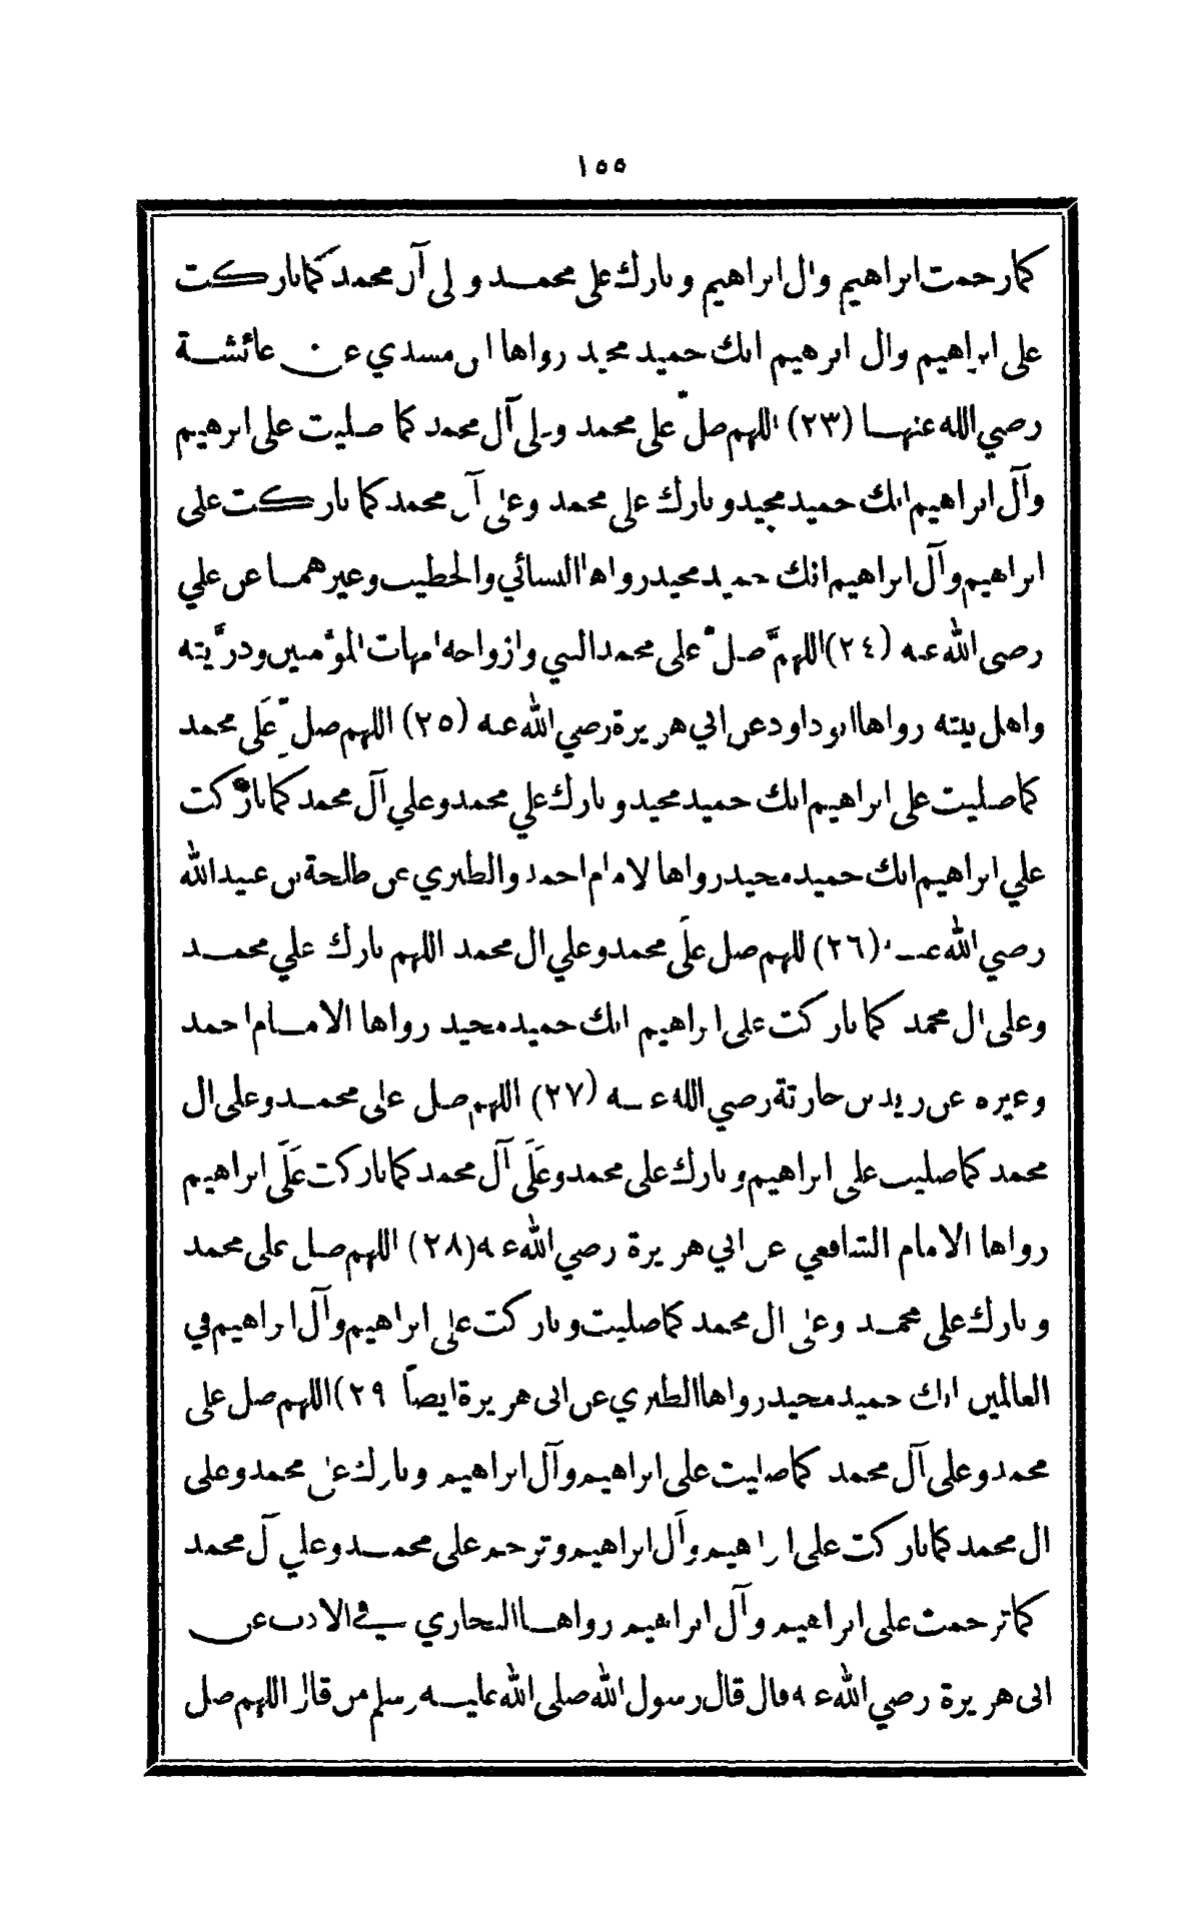 ١٥٥
كما رحمت ابراهيم وال ابراهيم وبارك على محمد و لى آل محمد كما باركت
على ابراهيم وال ابرهيم انك حميد مجيد رواها ابن مسدي عن عائشة
رضي الله عنها (٢٣) اللهم صلّ على محمد وعلى آل محمد كما صليت على ابرهيم
وآل ابراهيم انك حميد مجيد وبارك على محمد وعلى آل محمد كما باركت على
ابراهيم وآل ابراهيم انك حميد مجيد رواها النسائي والخطيب وغيرهما عن علي
رضى الله عنه (٢٤) اللهمَّ صلّ على محمد النبي وازواجه امهات المؤمنين وذرَّيته
واهل بيته رواها ابو داود عن ابي هريرة رضي الله عنه (٢٥) اللهم صلِّ عَلَى محمد
كما صليت على ابراهيم انك حميد مجيد وبارك علي محمد وعلي آل محمد كما باركت
علي ابراهيم انك حميد مجيد رواها الامام احمد والطبري عن طلحة بن عبيد الله
رضي الله عنه (٢٦) اللهم صل علَى محمد وعلي ال محمد اللهم بارك علي محمد
وعلى ال محمد كما باركت على ابراهيم انك حميد مجيد رواها الامام احمد
وغيره عن زيد بن حارثة رضي الله عنه (٢٧) اللهم صل على محمد وعلى ال
محمد كما صليت على ابراهيم وبارك على محمد وعَلَى آل محمد كما باركت عَلَى ابراهيم
رواها الامام الشافعي عن ابي هريرة رضي الله عنه (٢٨) اللهم صل على محمد
وبارك على محمد وعلى ال محمد كما صليت وباركت على ابراهيم وآل ابراهيم في
العالمين انك حميد مجيد رواها الطبري عن ابى هريرة ايضاً ٢٩) اللهم صل على
محمد وعلى آل محمد كما صليت على ابراهيم وآل ابراهيم وبارك على محمد وعلى
ال محمد كما باركت على ابراهيم وآل ابراهيم وترحم على محمد وعلي آل محمد
كما ترحمت على ابراهيم وآل ابراهيم رواها البخاري في الادب عن
ابى هريرة رضي الله عنه قال قال رسول الله صلى الله عليه وسلم من قال اللهم صل